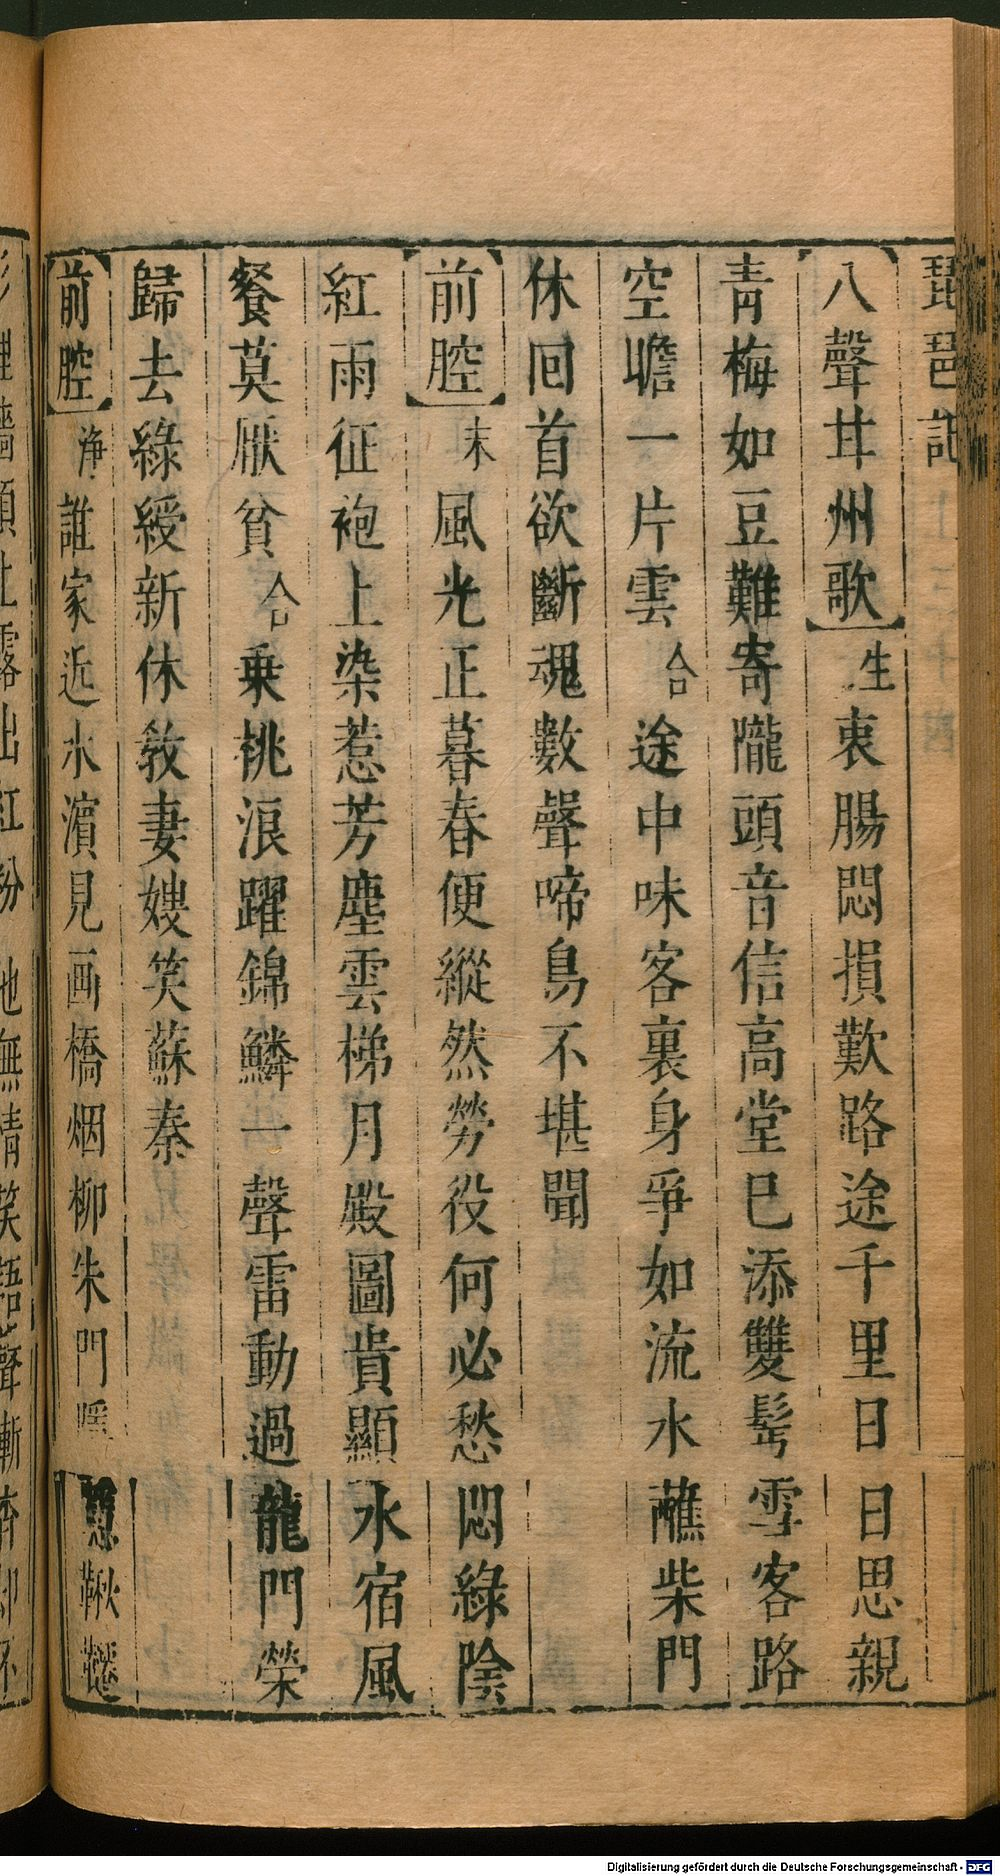 琵琶記
八聲甘州歌 生 衷腸悶損歎路途千里日日思親
青梅如豆難寄隴頭音信高堂已添雙髩雪客路
空瞻一片雲 合 途中味客裏身爭如流水蘸柴門
休回首欲斷魂數聲啼鳥不堪聞
前腔 末 風光正暮春便縱然勞役何必愁悶綠陰
紅雨征袍上染惹芳塵雲梯月殿圖貴顯水宿風
餐莫厭貧 合 乗桃浪躍錦鱗一聲雷動過龍門榮
歸去綠綬新休敎妻嫂笑蘇秦
前腔 淨 誰家近水濵見画橋烟柳朱門隱隱鞦韆
頭上露出紅粉他無情笑語聲漸杳却不
Digitalisierung gefördert durch die Deutsche Forschungsgemeinschaft - DFG